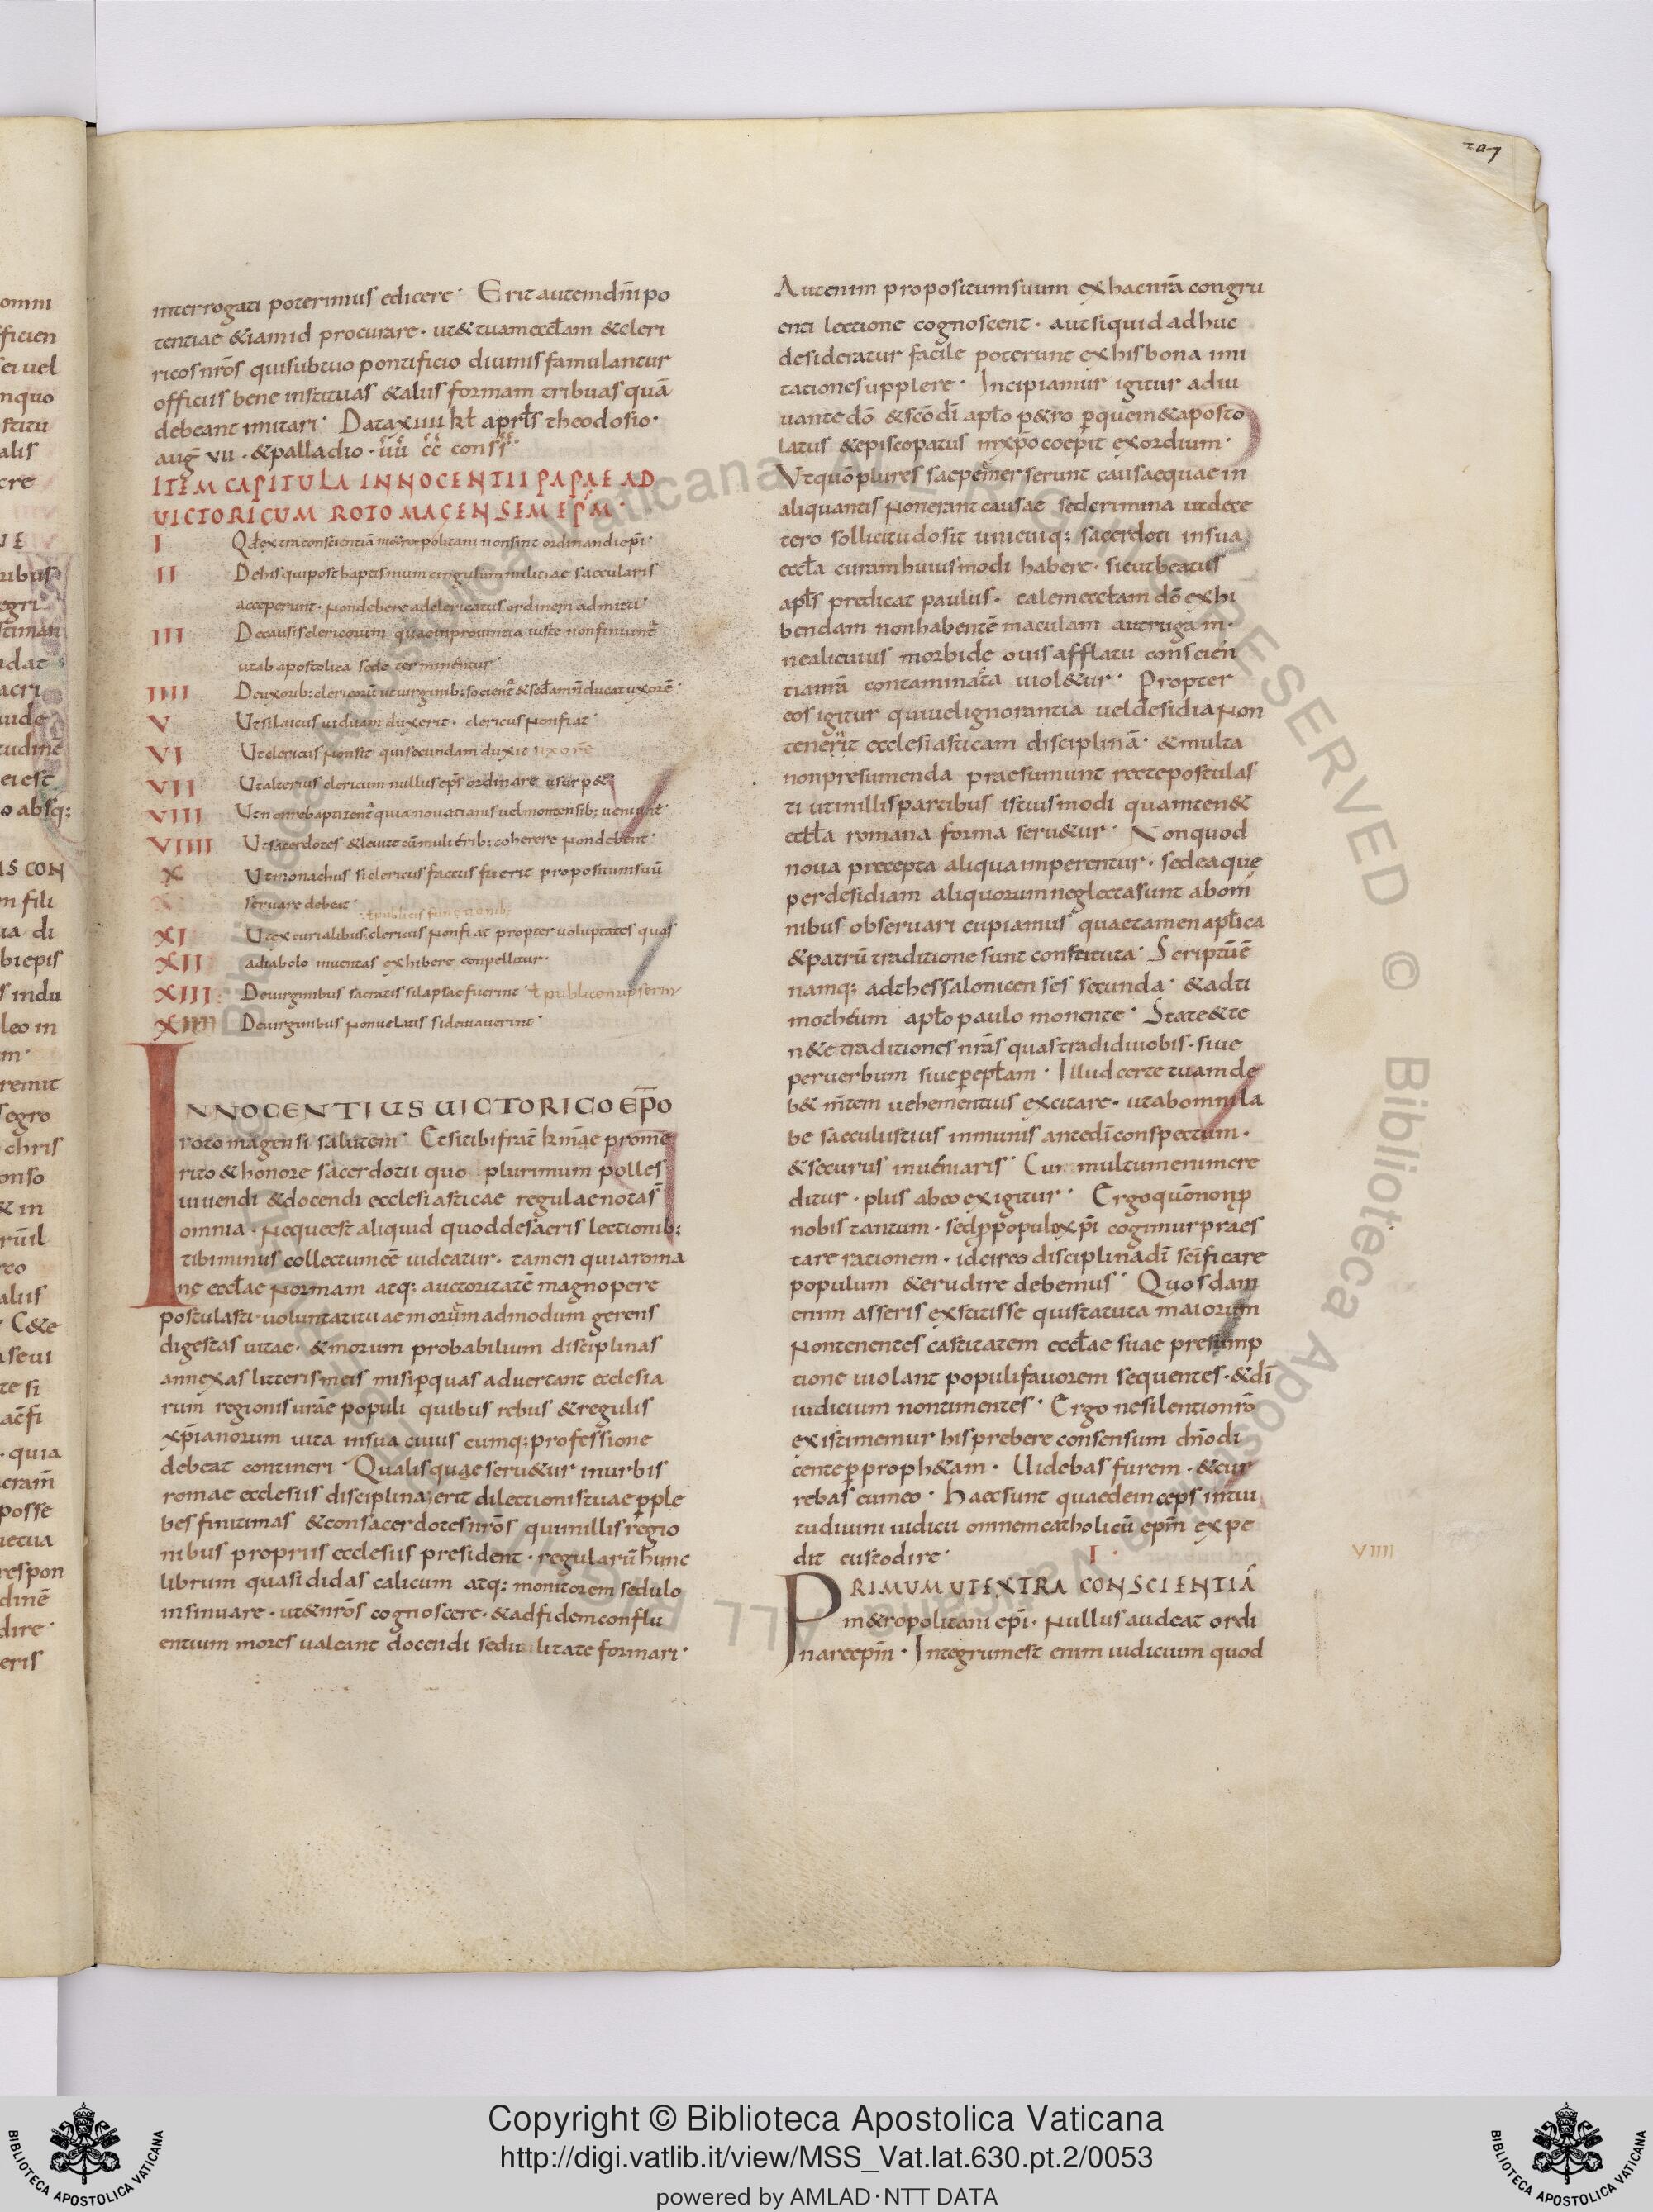 207
interrogati poterimus edicere· Erit autem dm̄ po
tentiae &iam id procurare· ut& tuam eccłam &cleri
ricos nr̄os qui sub tuo pontificio diuinis famulantur
officiis bene instituas &aliis formam tribuas quā
debeant imitari· Data xiiii kł aprłs theodosio·
aug̅ vii·&palladio· ūū c̄c̄ conss̄·
ITEM CAPITULA INNOCENTII PAPAE AD
UICTORICUM ROTOMAGENSEM EPM̄·
I Qđ extra conscientiā m&ropolitani non sint ordinandi ep̄i·
II De his qui post baptismum cingulum militiae saecularis
acceperunt· Non debere ad clericatus ordinem admitti·
III De causis clericorum quae in prouintia iuste non finiunt̄
ut ab apostolica sede terminentur·
IIII De uxorib: clericorū
V Ut si laicus uiduam duxerit· clericus Non fiat·
VI Ut clericus Non sit qui secundam duxit uxorē
VII Ut alterius clericum nullus ep̄s ordinare usurp&
VIII Ut non rebaptizent̄ qui a nouatianis uel montensib: ueniunt·
VIIII Ut sacerdotes &leuite cū mulierib: coherere Non debent·
X Ut monachus si clericus factus fuerit propositum suū
seruare debeat·
ł publicis functionib:
XI Ut ex curialibus: clericus Non fiat propter uoluptates quas
XII a diabolo inuentas exhibere conpellitur·
XIII De uirginibus sacratis si lapsae fuerint· ł publice nupserint
XIIII De uirginibus Non uelatis si deuiauerint·
INNOCENTIUS UICTORICO EP̄O
rotomagensi salutem· Etsi tibi frat̄ kme pro me
rito & honore sacerdotii quo plurimum polles
uiuendi &docendi ecclesiasticae regulae nota s̄
omnia· Neque est aliquid quod de sacris lectionib:
tibi minus collectum eē uideatur· tamen quia roma
ne eccłae Normam atq: auctoritatē magnopere
postulasti· uoluntati tuae morum̄ admodum gerens
digestas uitae· &morum probabilium disciplinas
annexas litteris meis misi p̱ quas aduertant ecclesia
rum regionis ur̄ae populi quibus rebus &regulis
xp̄ianorum uita in sua cuius cumq: professione
debeat contineri· Qualisque seru&ur in urbis
romae ecclesiis disciplina; erit dilectionis tuae p̱ ple
bes finitimas &consacerdotes nr̄os qui in illis regio
nibus propriis ecclesiis president· regularū hunc
librum quasi didascalicum atq: monitorem sedulo
insinuare· ut&nr̄os cognoscere· &ad fidem conflu
entium mores ualeant docendi sedulitate formari·
Aut enim propositum suum ex hac nr̄a congru
enti lectione cognoscent· aut si quid adhuc
desideratur facile poterunt ex his bona imi
tatione supplere· Incipiamur igitur adiu
uante dō &scōdī apło p&ro p̱ quem &aposto
latus &episcopatus in xp̄o coepit exordium·
Ut quō plures saepe emerserunt causae quae in
aliquantis Non erant causae sed crimina ut de ce
tero sollicitudo sit unicuiq: sacerdoti in sua
eccła curam huiusmodi habere· sicut beatus
apłs predicat paulus· talem eccłam dō exhi
bendam non habentē maculam aut rugam·
ne alicuius morbide ouis afflatu conscien
tia nr̄a contaminata uiol&ur· Propter
eos igitur qui uel ignorantia uel desidia Non
tenent ecclesiasticam disciplinā· &multa
non presumenda praesumunt recte postulas
ti ut in illis partibus istiusmodi quam ten&
eccła romana forma seru&ur· Non quod
noua precepta aliqua imperentur· sed ea que
per desidiam aliquorum neglecta sunt ab om̄
nibus obseruari cupiamus quae tamen apłica
&patrū traditione sunt constituta· Scriptū ē
namq: ad thessalonicenses secunda· &ad ti
motheum apło paulo monente· State &te
n&e traditiones nr̄as quas tradidi uobis· siue
per uerbum siue p̱ epłam· Illud certe tuam de
b& m̄tem uehementius excitare· ut ab omni la
be saeculi istius inmunis ante dī conspectum·
&securus inueniaris· Cui multum enim cre
ditur· plus ab eo exigitur· Ergo quō non ꝓ
nobis tantum· sed ꝓ populo xp̄i cogimur praes
tare rationem· idcirco disciplina dī scīficare
populum &erudire debemus· Quosdam
enim asseris exstitisse qui statuta maiorum
Non tenentes castitatem eccłae suae presump
tione uiolant populi fauorem sequentes· &dī
iudicium non timentes· Ergo ne silentio nr̄o
existimemur his prebere consensum dn̄o di
cente p̱ proph&am· Uidebas furem· &cur
rebas cum eo· Haec sunt quae deinceps intui
tu diuini iudicii omnem catholicū ep̄m expe
dit custodire· I·
PRIMUM UT EXTRA CONSCIENTIĀ
m&ropolitani ep̄i· Nullus audeat ordi
nare ep̄m· Integrum est enim iudicium quod
VIIII
Copyright © Biblioteca Apostolica Vaticana
http://digi.vatlib.it/view/MSS_Vat.lat.630.pt.2/0053
powered by AMLAD·NTT DATA
BIBLIOTECA APOSTOLICA VATICANA
BIBLIOTECA APOSTOLICA VATICANA